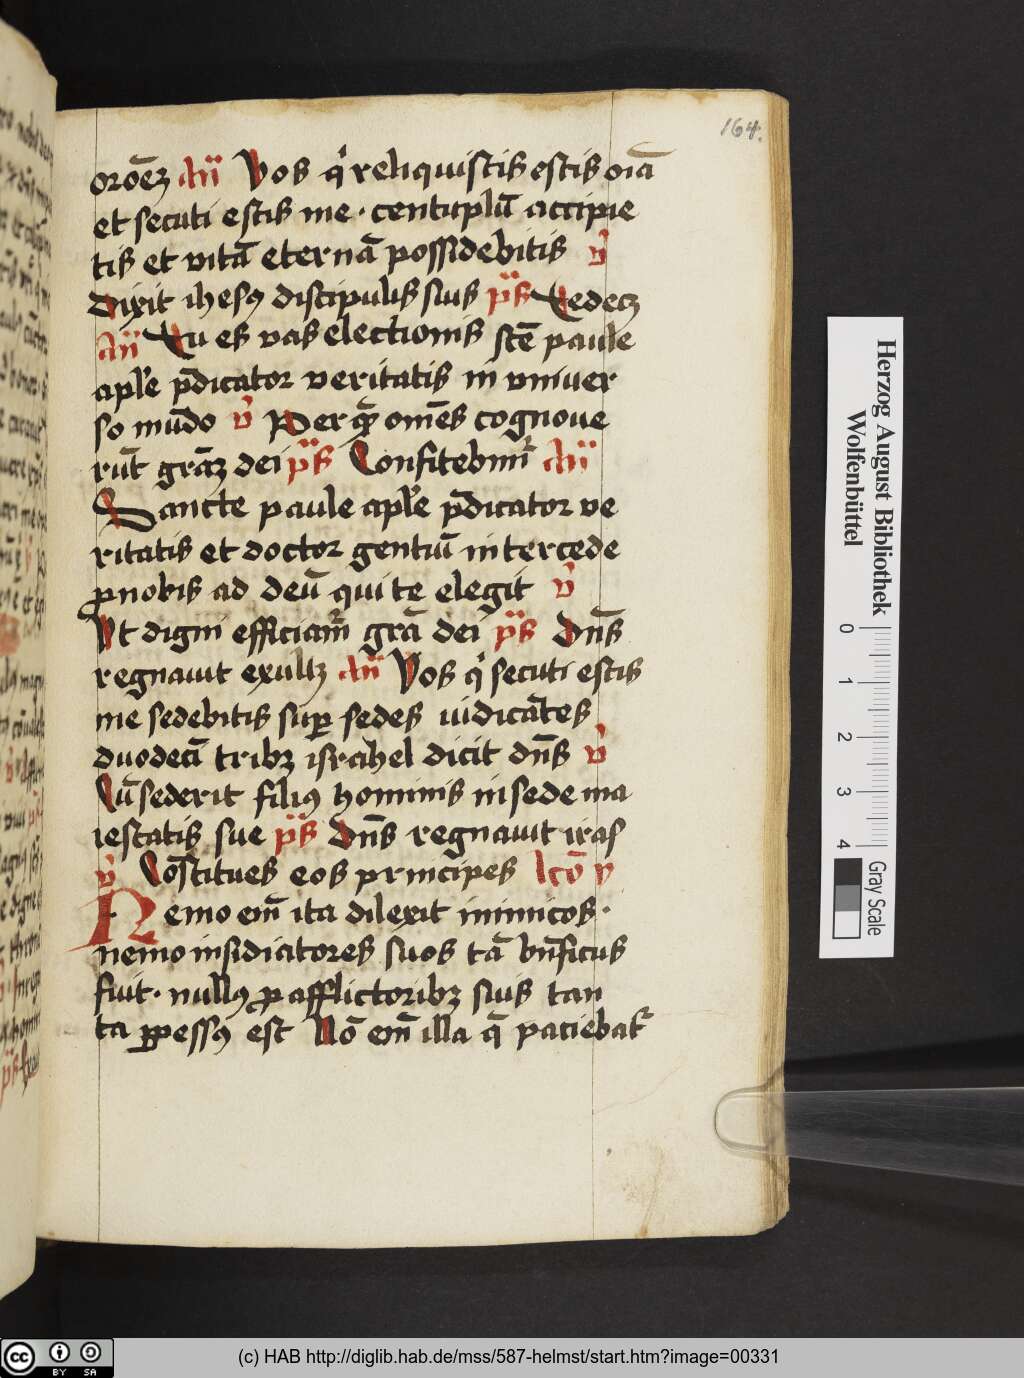 164.
oroēꝫ añ Vos qͥ reliquistis estis oīa
et secuti estis me · centuplū accipie
tis et vitā eternā possidebitis v̊
Dixit ihesꝯ discipulis suis p̄s Te decꝫ
añ Tu es vas electionis scē paule
apłe p̄dicator veritatis in vniuer
so mūdo v̊ Per quā̄ om̄es cognoue
rūt grāꝫ dei p̄s Confitebimͬ añ
Sancte paule apłe p̄dicator ve
ritatis et doctor gentiū intercede
ꝓ nobis ad deū qui te elegit v̊
Vt digni efficiamͬ grā dei p̄s Dn̄s
regnauit exultꝫ añ Vos qͥ secuti estis
me sedebitis suꝑ sedes iudicātes
duodecī tribꝫ israhel dicit dn̄s v̊
Cū sederit filiꝯ hominis in sede ma
iestatis sue p̄s Dn̄s regnauit iras
v̊ Cōstitues eos principes lcō v
Nemo em̄ ita dilexit inimicos ·
nemo insidiatores suos tā bn̄ficus
fuit · nullꝯ ꝓ afflictoribꝫ suis tan
ta ꝑpessꝯ est Nō em̄ illa q̄ paciebatͬ
Herzog August Bibliothek
Wolfenbüttel
0 1 2 3 4
Gray Scale
cc BY SA
(c) HAB http://diglib.hab.de/mss/587-helmst/start.htm?image=00331